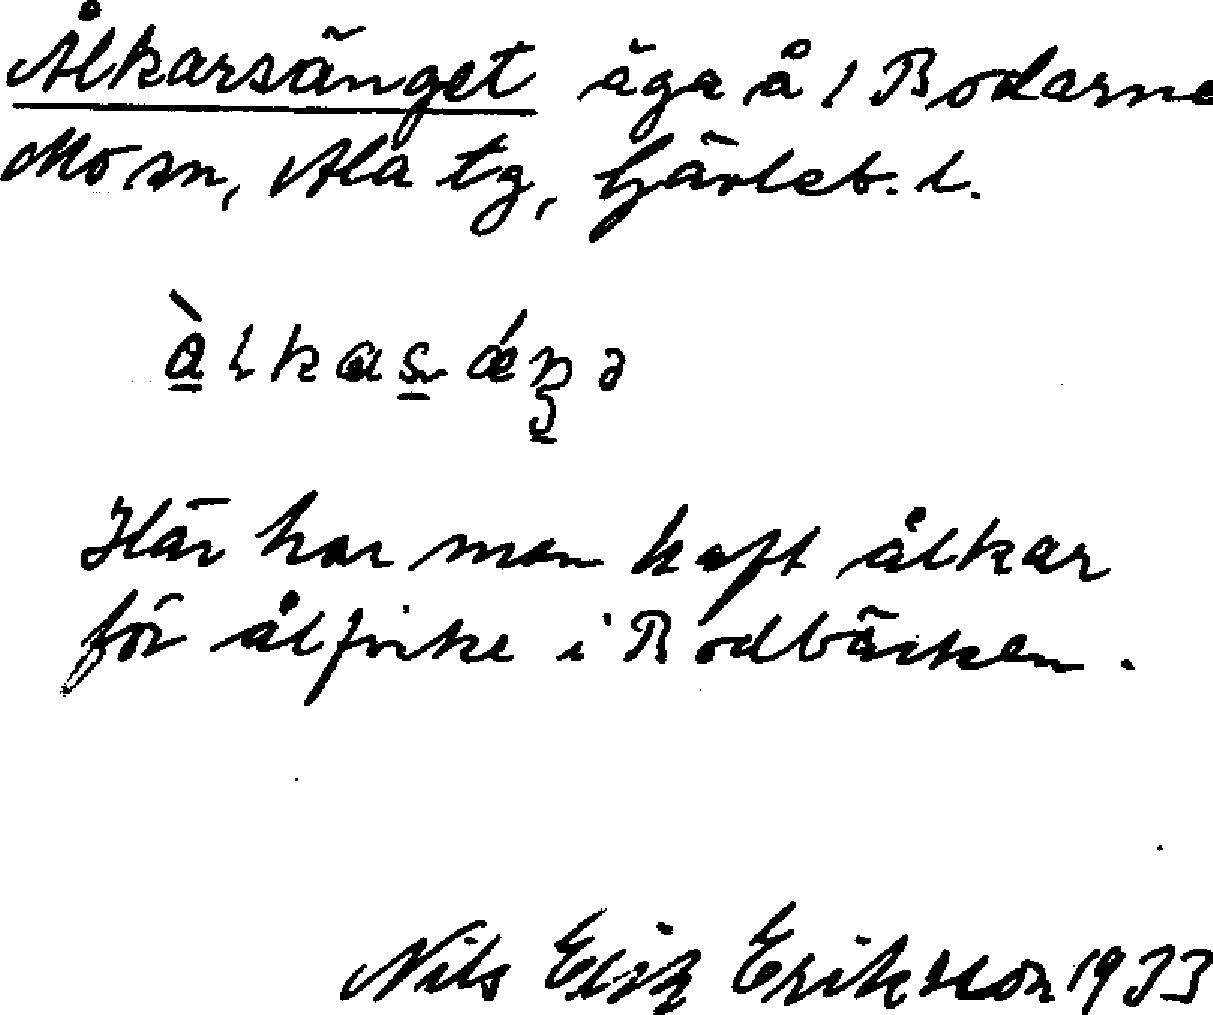 Ålkarsänget äga å 1 Bodarne
Mo sn, Ala tg, Gävleb. l.
àlkasǽŋə
Här har man haft ålkar
för ålfiske i Bodbäcken.
Nils Erik Eriksson 1933